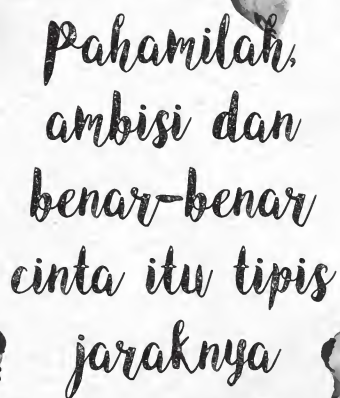 Pahamilah,
ambisi dan
benar-benar
cinta itu tipis
jaraknya